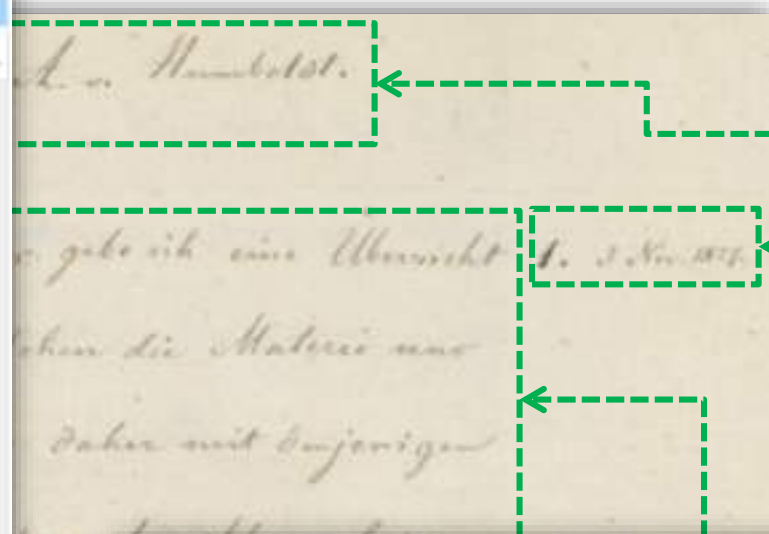 A. v. Humboldt.
gebe ich eine Übersicht 1. 3 Nov. 1827.
die Materie nur
daher mit denjenigen